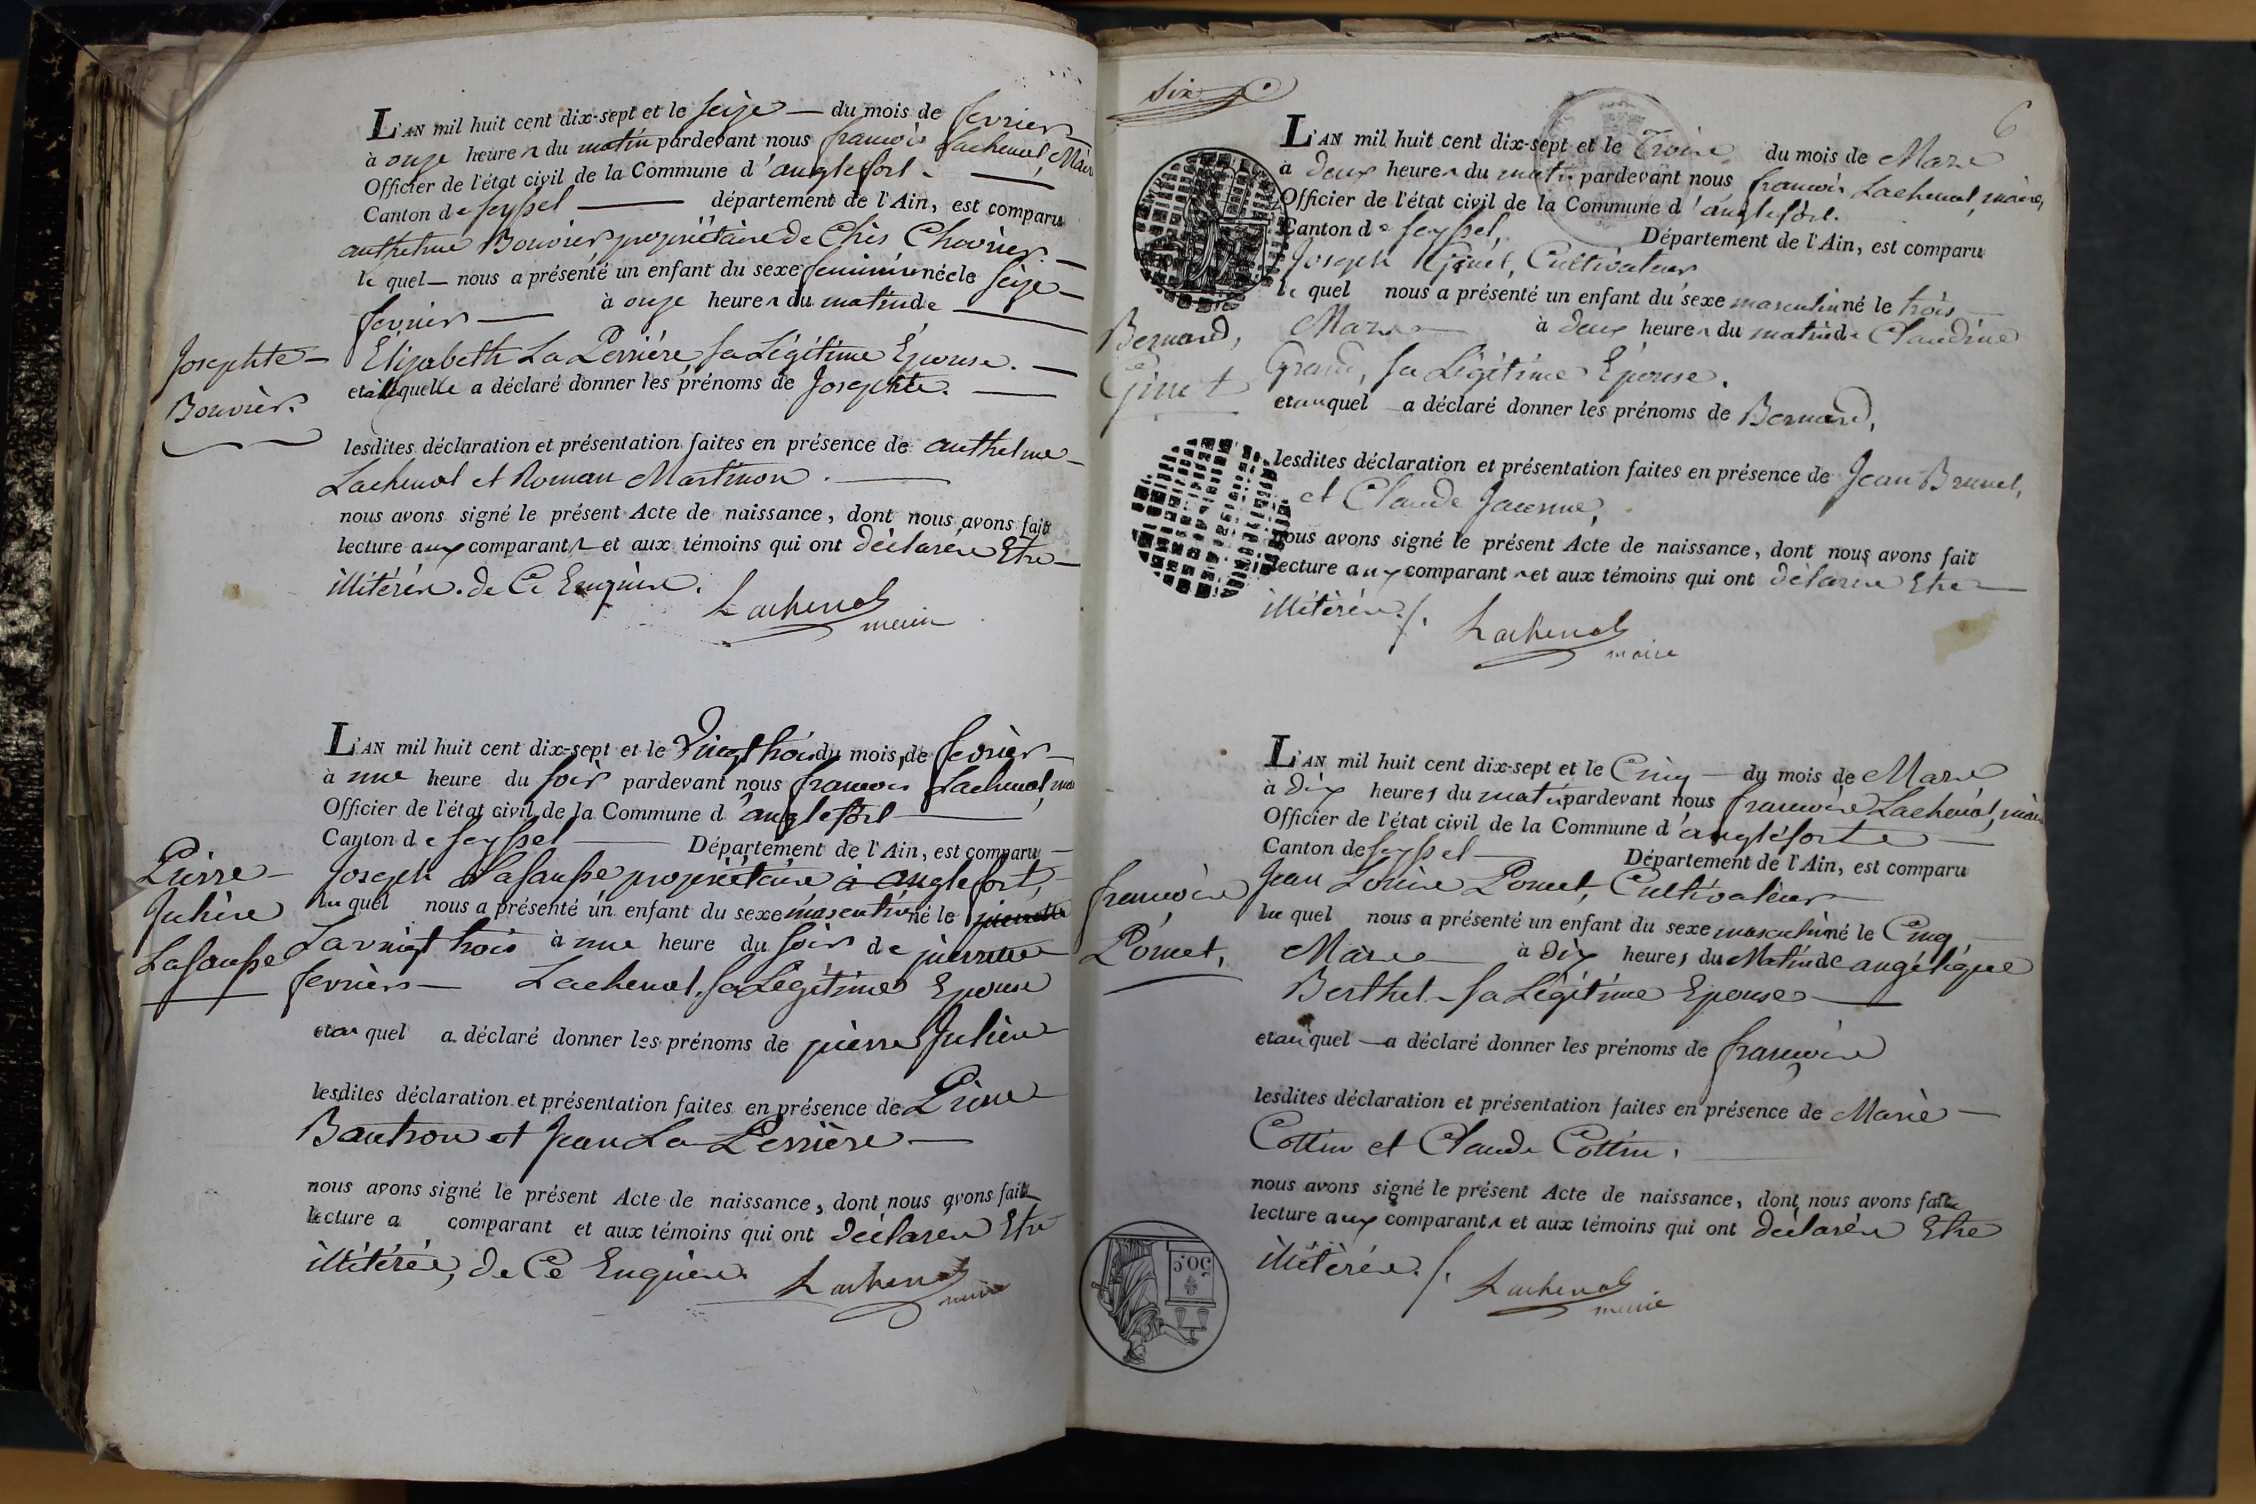 L'AN mil huit cent dix-sept et le seize — du mois de fevrier
à onze heures du matin pardevant nous francois Lachenal, Maire
Officier de l'état civil de la Commune d'anglefort —
Canton de seyssel — département de l'Ain, est comparu
anthelme Bouvier propriétaire de Chez
le quel — nous a présenté un enfant du sexe feminin né le seize —
fevrier — à onze heures du matin de —
Josephte —
Elizabeth La Perrière sa Légitime Epouse. —
et a laquelle a déclaré donner les prénoms de Josephte. —
Bouvier.
lesdites déclaration et présentation faites en présence de anthelme —
Lachenal et Roman Martinon. —
nous avons signé le présent Acte de naissance, dont nous avons fait
lecture aux comparants et aux témoins qui ont déclarés Etre —
illitérés. de Ce Enquis.
Lachenal
maire
L'AN mil huit cent dix-sept et le Vingt trois du mois de fevrier —
à une heure du soir pardevant nous francois Lachenal, maire
Officier de l'état civil de la Commune d'anglefort —
Canton de seyssel — Département de l'Ain, est comparu —
Pierre —
Joseph Lasausse propriétaire à anglefort, —
Julien
le quel nous a présenté un enfant du sexe masculin né le
Lasausse
vingt trois à une heure du soir de pierrette
fevrier — Lachenal, sa Légitime Epouse
et au quel a déclaré donner les prénoms de pierre Julien
lesdites déclaration et présentation faites en présence de Pierre
Bautron et Jean La Perrière —
nous avons signé le présent Acte de naissance, dont nous avons fait
lecture a comparant et aux témoins qui ont déclarés Etre
illitérés, de Ce Enquis.
Lachenal
maire
six
6
L'AN mil huit cent dix-sept et le Trois du mois de Mars
à deux heures du matin pardevant nous francois Lachenal, maire,
Officier de l'état civil de la Commune d'anglefort.
Canton de seyssel, Département de l'Ain, est comparu
Joseph Ginet, Cultivateur
le quel nous a présenté un enfant du sexe masculin né le trois
Bernard,
Mars — à deux heures du matin de Claudine
Ginet
Grand, sa Légitime Epouse.
et au quel — a déclaré donner les prénoms de Bernard,
lesdites déclaration et présentation faites en présence de Jean Brunet,
et Claude
nous avons signé le présent Acte de naissance, dont nous avons fait
lecture aux comparants et aux témoins qui ont déclarés Etre —
illitérés./.
Lachenal
maire
L'AN mil huit cent dix-sept et le Cinq — du mois de Mars
à dix heures du matin pardevant nous francois Lachenal, maire
Officier de l'état civil de la Commune d'angleforte —
Canton de seyssel — Département de l'Ain, est comparu
francois
Jean Louis Pomet, Cultivateur
le quel nous a présenté un enfant du sexe masculin né le Cinq, —
Pomet,
Mars — à dix heures du Matin de angélique
Berthet — sa Légitime Epouse —
et au quel — a déclaré donner les prénoms de francois
lesdites déclaration et présentation faites en présence de Marie —
Cottin et Claude Cottin. —
nous avons signé le présent Acte de naissance, dont nous avons fait
lecture aux comparants et aux témoins qui ont déclarés Etre
illitérés./.
Lachenal
maire
50C